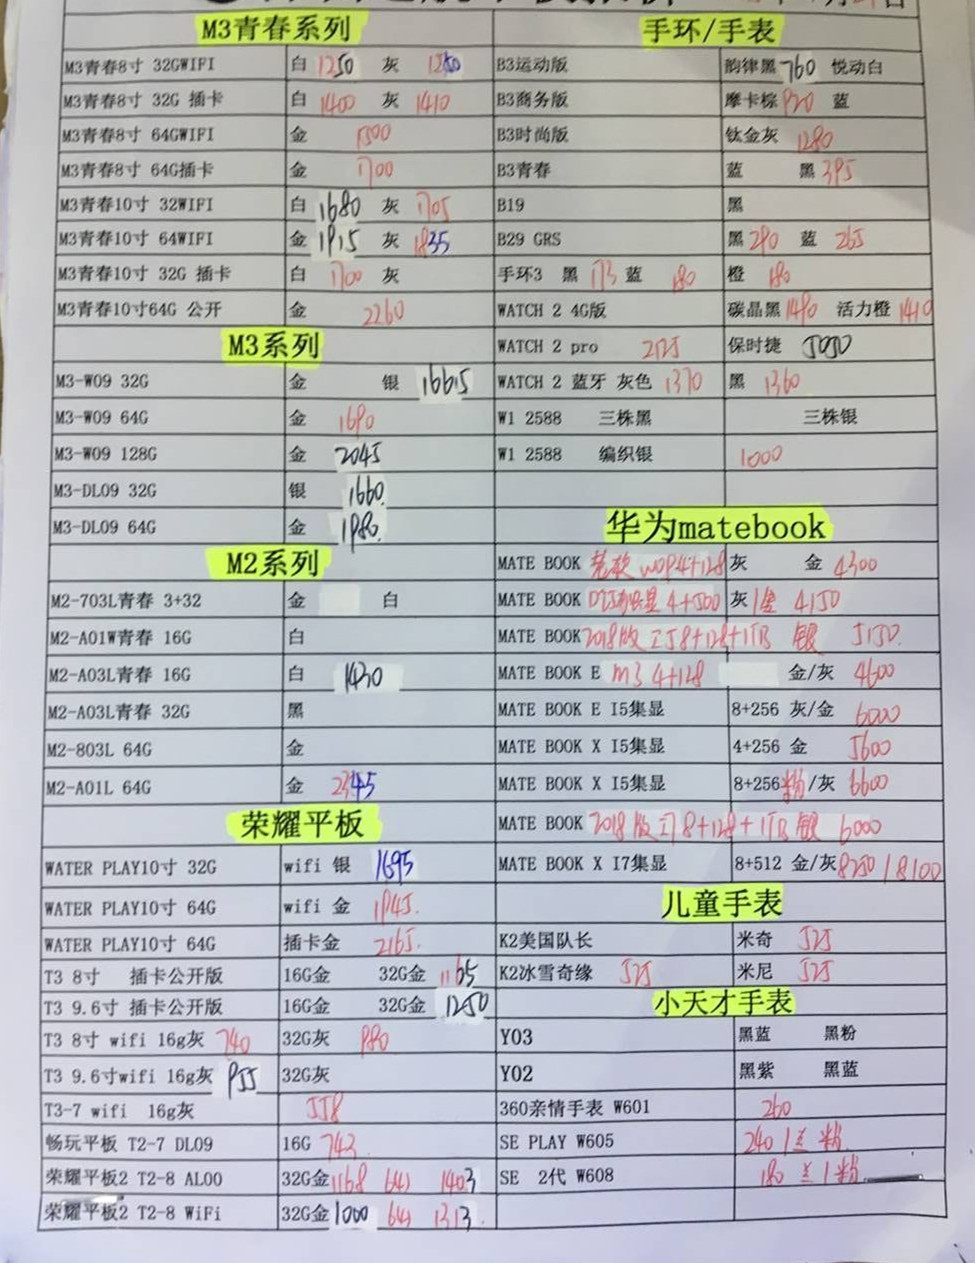 M3青春系列
M3青春8寸 32GWIFI 白 1250 灰 1250
M3青春8寸 32G 插卡 白 1400 灰 1410
M3青春8寸 64GWIFI 金 1500
M3青春8寸 64G插卡 金 1700
M3青春10寸 32WIFI 白 1680 灰 1705
M3青春10寸 64WIFI 金 1915 灰 1835
M3青春10寸 32G 插卡 白 1700 灰
M3青春10寸64G 公开 金 2260
M3系列
M3-W09 32G 金 银 1665
M3-W09 64G 金 1690
M3-W09 128G 金 2045
M3-DL09 32G 银 1660
M3-DL09 64G 金 1980
M2系列
M2-703L青春 3+32 金 白
M2-A01W青春 16G 白
M2-A03L青春 16G 白 1430
M2-A03L青春 32G 黑
M2-803L 64G 金
M2-A01L 64G 金 2345
荣耀平板
WATER PLAY10寸 32G wifi 银 1695
WATER PLAY10寸 64G wifi 金 1945
WATER PLAY10寸 64G 插卡金 2165
T3 8寸 插卡公开版 16G金 32G金 1165
T3 9.6寸 插卡公开版 16G金 32G金 1250
T3 8寸 wifi 16g灰 740 32G灰 880
T3 9.6寸wifi 16g灰 955 32G灰
T3-7 wifi 16g灰 558
畅玩平板 T2-7 DL09 16G 742
荣耀平板2 T2-8 AL00 32G金 1168 64G 1403
荣耀平板2 T2-8 WiFi 32G金 1000 64G 1313
手环/手表
B3运动版 韵律黑 760 悦动白
B3商务版 摩卡棕 920 蓝
B3时尚版 钛金灰 1280
B3青春 蓝 黑 395
B19 黑
B29 GRS 黑 290 蓝 265
手环3 黑 173 蓝 180 橙 180
WATCH 2 4G版 碳晶黑 1490 活力橙 1410
WATCH 2 pro 2125 保时捷 5050
WATCH 2 蓝牙 灰色 1370 黑 1360
W1 2588 三株黑 三株银
W1 2588 编织银 1000
华为matebook
MATE BOOK 4+128 灰 金 4300
MATE BOOK 4+500 灰 4150
MATE BOOK 2018版 I5 8+128+1TB 银 5150
MATE BOOK E m3 4+128 金/灰 4600
MATE BOOK E I5集显 8+256 灰/金 6000
MATE BOOK X I5集显 4+256 金 5600
MATE BOOK X I5集显 8+256 粉/灰 6600
MATE BOOK 2018版 I7 8+128+1TB 银 6000
MATE BOOK X I7集显 8+512 金/灰 8250/8100
儿童手表
K2美国队长 米奇 525
K2冰雪奇缘 525 米尼 525
小天才手表
Y03 黑蓝 黑粉
Y02 黑紫 黑蓝
360亲情手表 W601 260
SE PLAY W605 240 兰 粉
SE 2代 W608 180 兰/粉